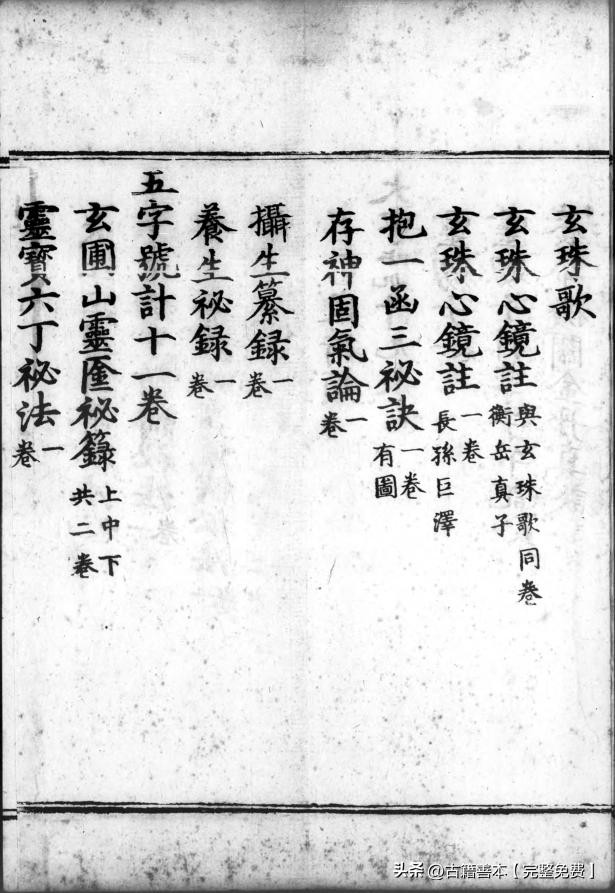 玄珠歌
玄珠心鏡註 與玄珠歌同卷 衡岳真子
玄珠心鏡註 一卷 長孫巨澤
抱一函三祕訣 一卷 有圖
存神固氣論 一卷
攝生纂録 一卷
養生祕録 一卷
五字號計十一卷
玄圃山靈𠥖祕籙 上中下 共二卷
靈寶六丁祕法 一卷
头条@古籍善本【完整免费】